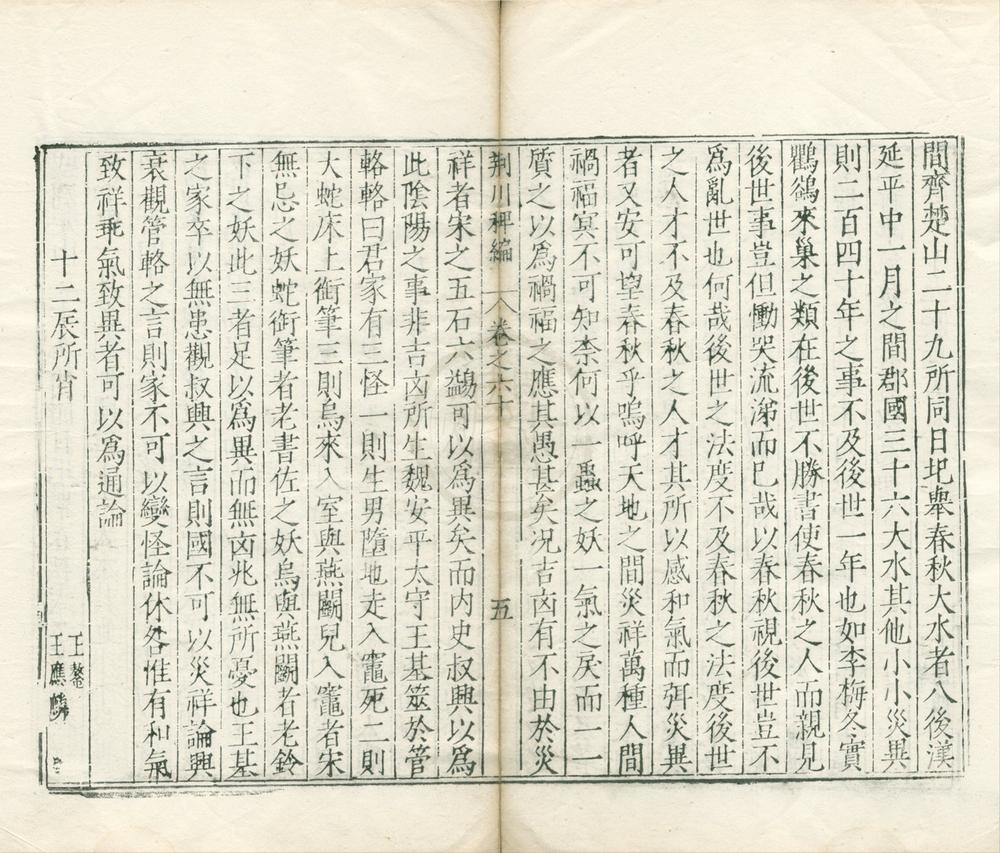 間齊楚山二十九所同日圯舉春秋大水者八後漢
延平中一月之間郡國三十六大水其他小小災異
則二百四十年之事不及後世一年也如李梅冬實
鸜鵒來巢之類在後世不勝書使春秋之人而親見
後世事豈但慟哭流涕而巳哉以春秋視後世豈不
爲亂世也何哉後世之法度不及春秋之法度後世
之人才不及春秋之人才其所以感和氣而弭災異
者又安可望春秋乎嗚呼天地之間災祥萬種人間
禍福冥不可知柰何以一蟲之妖一氣之戾而一一
質之以爲禍福之應其愚甚矣况吉凶有不由於災
荆川稗編 卷之六十 五
祥者宋之五石六鷁可以爲異矣而内史叔興以爲
此陰陽之事非吉凶所生魏安平太守王基筮於管
輅輅曰君家有三怪一則生男墮地走入竈死二則
大蛇床上銜筆三則烏來入室與燕鬭兒入竈者宋
無忌之妖蛇銜筆者老書佐之妖烏與燕鬭者老鈴
下之妖此三者足以爲異而無凶兆無所憂也王基
之家卒以無患觀叔興之言則國不可以災祥論興
衰觀管輅之言則家不可以變怪論休咎惟有和氣
致祥乖氣致異者可以爲通論
十二辰所肖
王鏊
王應麟